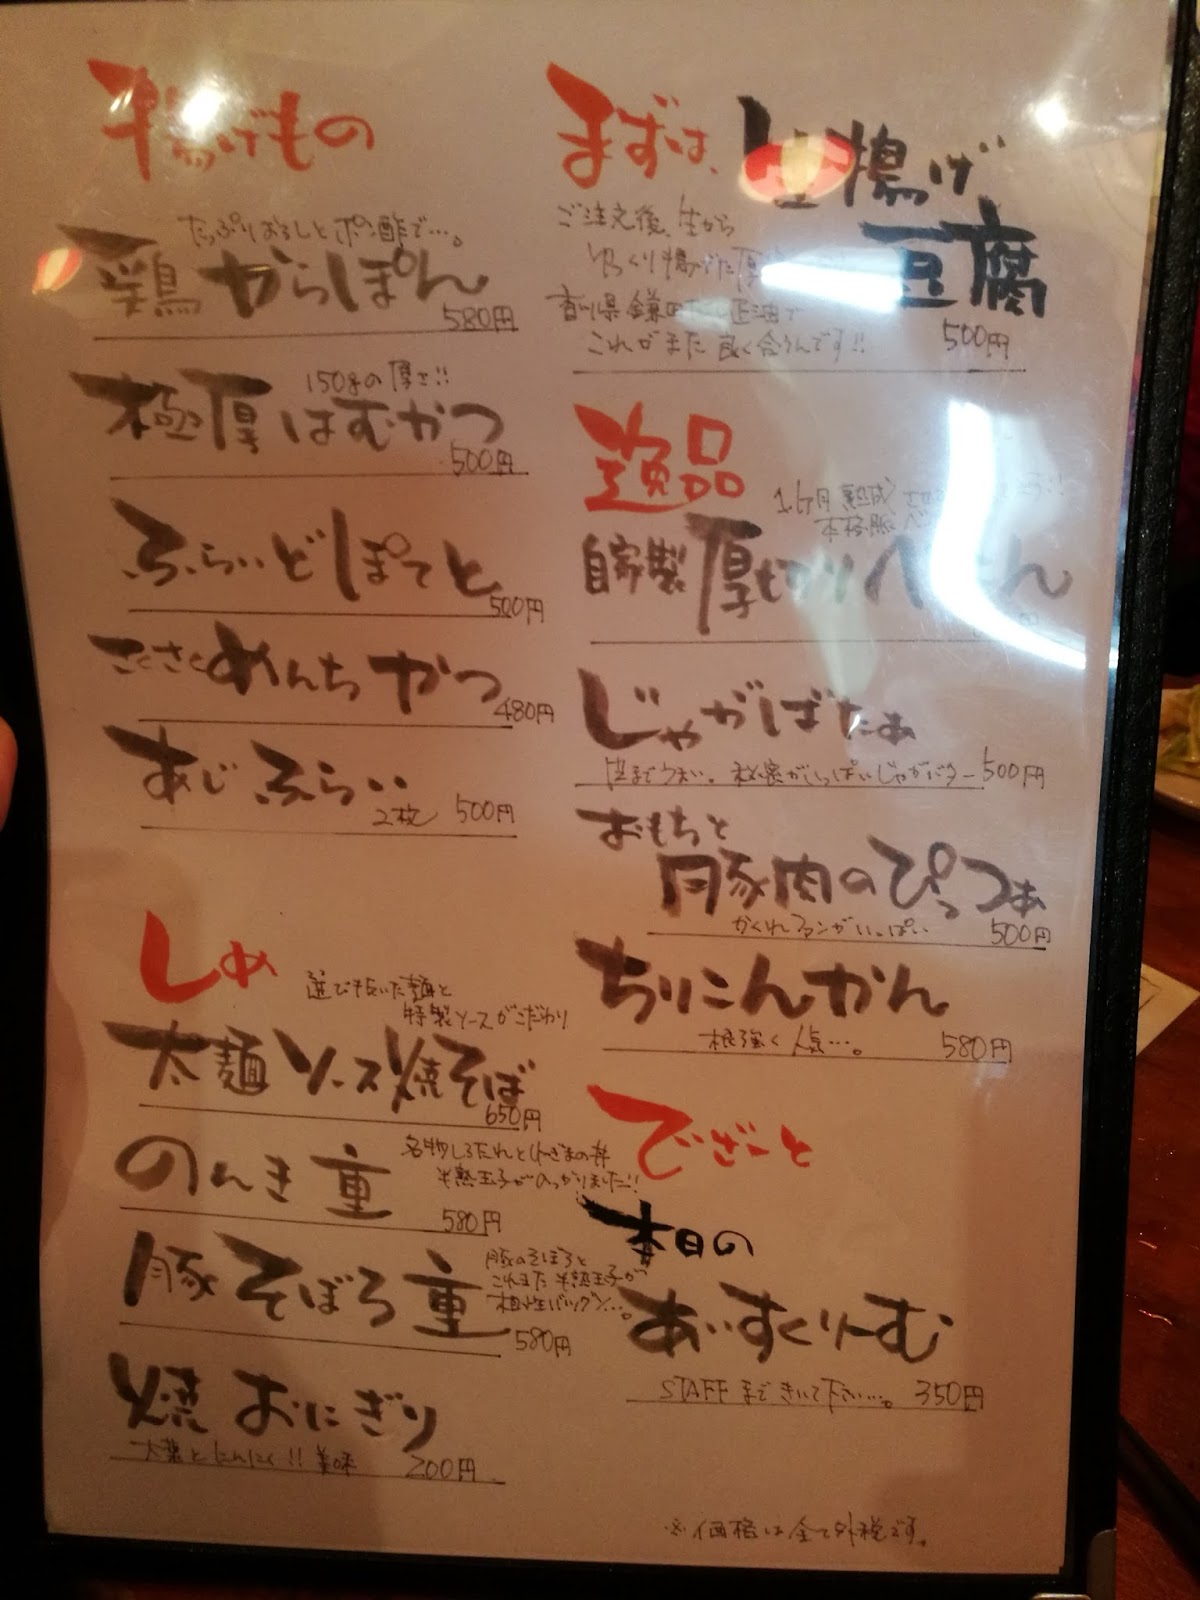 揚げもの
たっぷりおろしとポン酢で…。
鶏からぽん
580円
150gの厚さ!!
極厚はむかつ
500円
ふらいどぽてと
500円
さくさくめんちかつ
480円
あじふらい
2枚 500円
しめ
選び抜いた麺と
特製ソースがこだわり
太麺ソース焼そば
650円
のんき重
名物しろたれとねぎまの丼
半熟玉子がのっかりました!!
580円
豚そぼろ重
豚のそぼろと
これまた半熟玉子が
相性バツグン…。
580円
焼おにぎり
大葉とにんにく!! 美味 200円
まずは、生揚げ
豆腐
ご注文後、生から
ゆっくり揚げた厚
香川県鎌田 正油で
これがまた良く合うんです!!
500円
逸品
1ヶ月熟成
本格豚ベ
自家製厚切りべ こん
じゃがばたぁ
皮までうまい。秘密がいっぱいじゃがバター 500円
おもちと
豚肉のぴっつあ
かくれファンがいっぱい 500円
ちりこんかん
根強く人気…。 580円
でざーと
本日の
あいすくりーむ
STAFFまできいて下さい…。 350円
※価格は全て外税です。